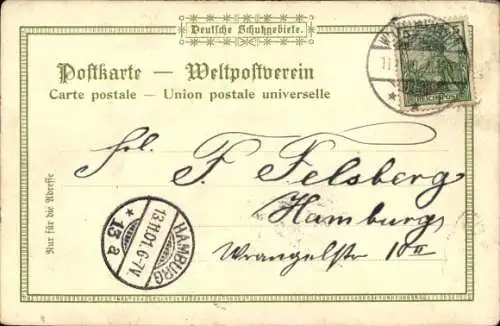 Deutsche Schutzgebiete.
Postkarte — Weltpostverein
Carte postale — Union postale universelle
Frl. F. Felsberg
Hamburg
Wrangelstr 10 II
Nur für die Adresse
HAMBURG
13.11.01.6-7V.
* 13 a
REICHSPOST